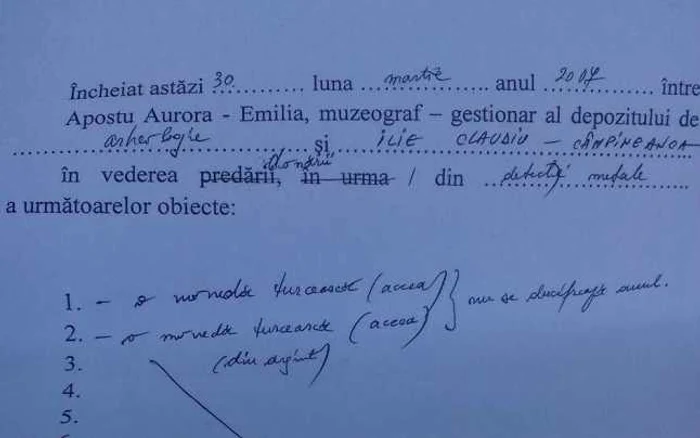 Încheiat astăzi 30 .......... luna ... martie ............... anul ... 2007 ............ între
Apostu Aurora - Emilia, muzeograf – gestionar al depozitului de
............ arheologie ............ și ...... ILIE CLAUDIU – CÂMPINEANCA
donării
în vederea predării, în urma / din ... detecție metale ......
a următoarelor obiecte:
1. – o monedă turcească (accea) } nu se descifrează anul.
2. – o monedă turcească (accea)
3. (din argint)
4.
5.